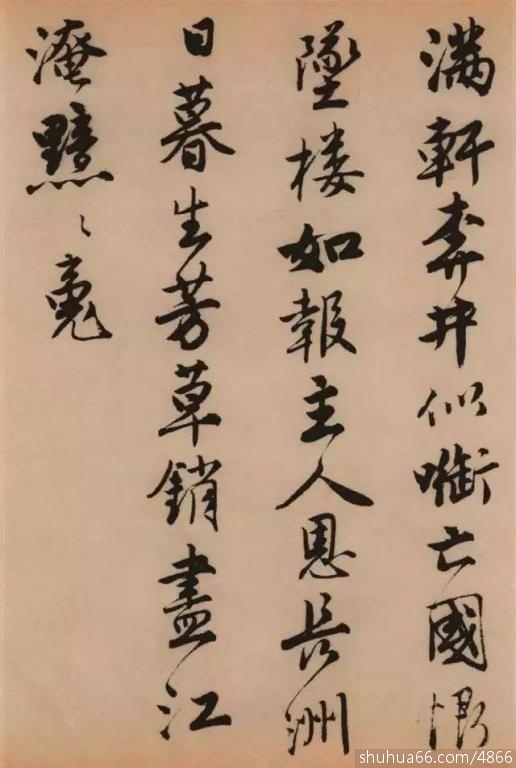 滿軒奔井似啣亡國恨
墜楼如報主人恩長洲
日暮生芳草銷盡江
淹黯〻魂
shuhua66.com/4866